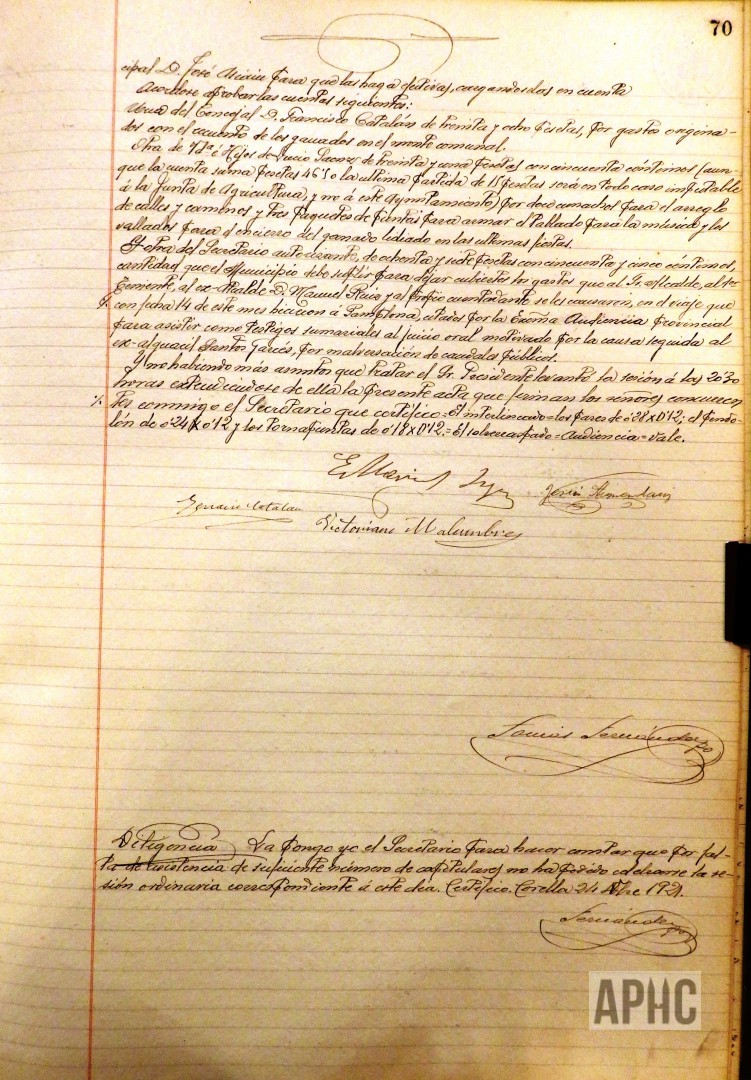 70
cipal D. José para que las haga efectivas, cargandoselos en cuenta
Acordose aprobar las cuentas siguientes:
Una del Concejal D. Francisco Catalán de treinta y ocho pesetas, por gastos origina-
dos con el recuento de los ganados en el monte comunal.
Otra de Vda é Hijos de Lucio de treinta y una pesetas con cincuenta céntimos (aun-
que la cuenta suma pesetas 46'50 la ultima partida de 15 pesetas será en todo caso imputable
á la Junta de Agricultura, y no á este Ayuntamiento) por doce capachos para el arreglo
de calles y caminos y tres paquetes de puntas para armar el tablado para la música y los
vallados para el encierro del ganado lidiado en las ultimas fiestas.
Y otra del Secretario autorizante, de ochenta y siete pesetas con cincuenta y cinco céntimos,
cantidad que el Municipio debe suplir para dejar cubiertos los gastos que al Sr. Alcalde, al 1er
Teniente, al ex-Alcalde D. Manuel Ruiz y al propio cuentadante se les causaren, en el viaje que
con fecha 14 de este mes hicieron á Pamplona, citados por la Excma Audiencia Provincial
para asistir como testigos sumariales al juicio oral motivado por la causa seguida al
ex-alguacil Santos Garcés, por malversación de caudales públicos.
Y no habiendo más asuntos que tratar el Sr. Presidente levantó la sesión á las 20'30
horas extendiendose de ella la presente acta que firman los señores concurren
tes conmigo el Secretario que certifico = El interlineado = los pares de 0'28 x 0'12; el
lón de 0'24 x 0'12 y los de 0'18 x 0'12. = El sobreraspado = Audiencia = vale.
Jesús
Catalán
Victoriano Malumbres
Fernández
Diligencia La pongo yo el Secretario para hacer constar que por fal-
ta de asistencia de suficiente número de capitulares no ha podido celebrarse la se-
sión ordinaria correspondiente á este dia. Certifico. Corella 24 1921.
Fernández
APHC